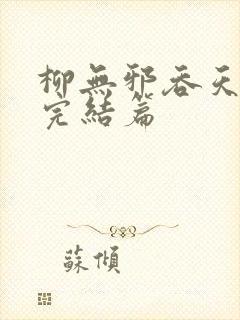 柳無邪吞天
完結篇
蘇傾